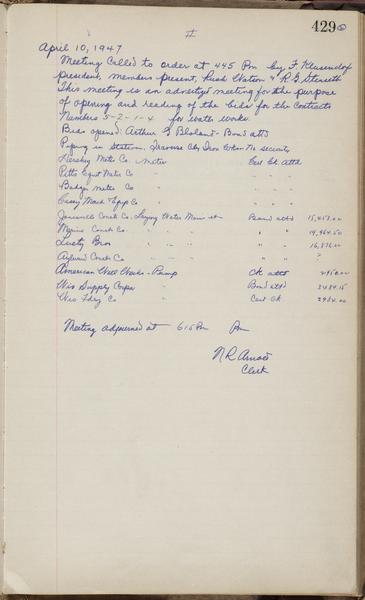 429
April 10, 1947
Meeting Called to order at 445 Pm by F. Klusendorf
president, members present, Rush Watson & R. G.
This meeting is an advertized meeting for the purpose
of opening and reading of the bids for the contracts
Numbers 5-2-1-4 for water works.
Bids opened: Arthur G Bloland - Bond attd
Piping in Station. Iron Works No security
Hersey Meter Co. Meter Cert Ck attd
Pitts Equit Meter Co "
Badger meter Co "
Casey Mach & Equip Co "
Janesville Const Co. Laying Water Main Bond attd 15,457.00
Const Co. " " " " " 19,964.50
Lusty Bro " " " " " 16,876.00
Const Co " " " " " ?
American Well Works - Pump Ck attd 2950.00
Wis Supply Corpn " Bond attd 3484.15
Wis Fdry Co " Cert Ck. 2984.00
Meeting adjourned at 615 Pm Pm
N R Arnott
Clerk